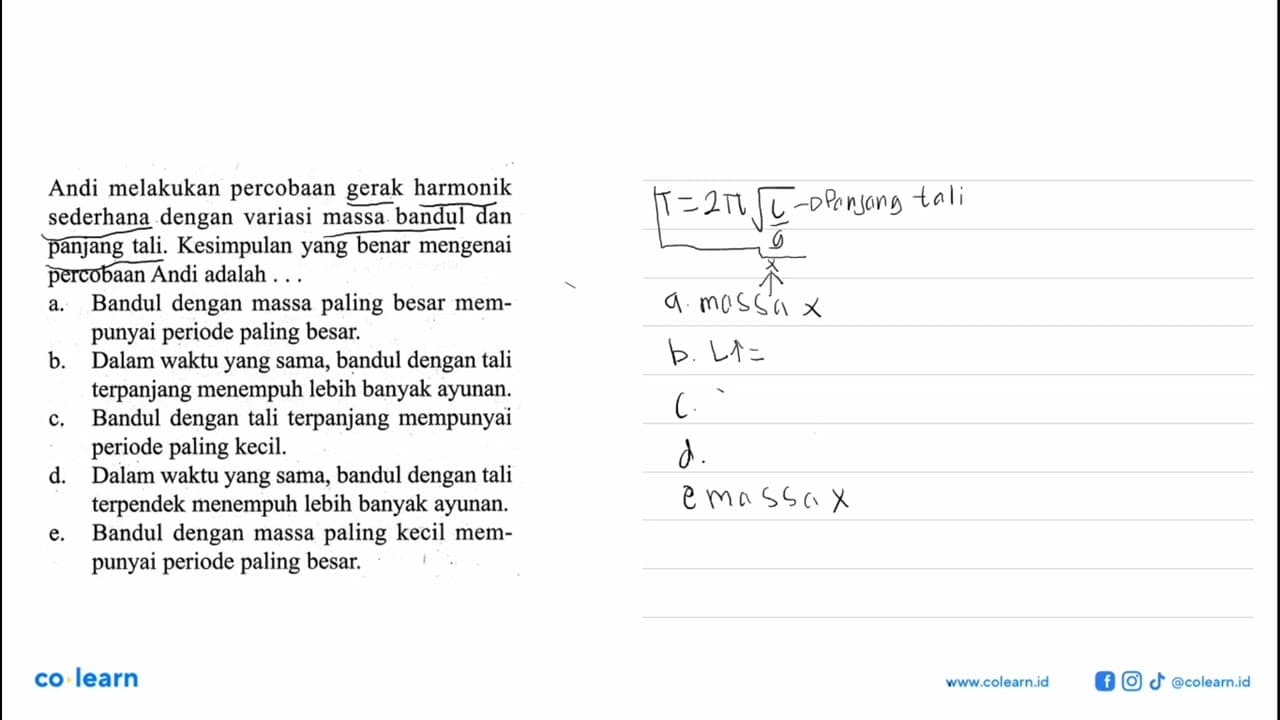 Andi melakukan percobaan gerak harmonik
sederhana dengan variasi massa bandul dan
panjang tali. Kesimpulan yang benar mengenai
percobaan Andi adalah . . .
a. Bandul dengan massa paling besar mem-
punyai periode paling besar.
b. Dalam waktu yang sama, bandul dengan tali
terpanjang menempuh lebih banyak ayunan.
c. Bandul dengan tali terpanjang mempunyai
periode paling kecil.
d. Dalam waktu yang sama, bandul dengan tali
terpendek menempuh lebih banyak ayunan.
e. Bandul dengan massa paling kecil mem-
punyai periode paling besar.
T = 2π√L/g → Panjang tali
x
↑
a. massa x
b. L↑=
c.
d.
e massa x
co learn
www.colearn.id
@colearn.id